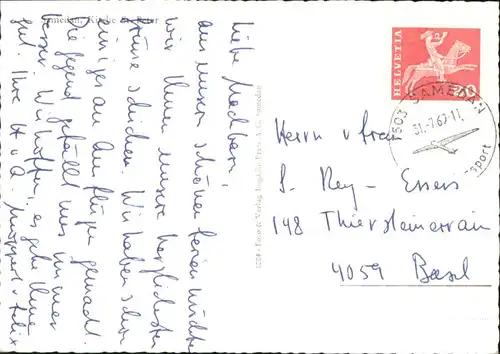 Samedan, Kirche St. Peter
Liebe Nachbarn,
aus unsern schönen Ferien möchten
wir Ihnen unsere herzlichsten
Grüsse schicken. Wir haben schon
einiges an Ausflügen gemacht.
Die Gegend gefällt uns immer
besser. Wir hoffen, es gehe Ihnen
gut. Ihre H + A
HELVETIA
7503 SAMEDAN
31.-7.67-11
sport
Herrn u Frau
P. Rey - Essers
148 Thiersteinerrain
4059 Basel